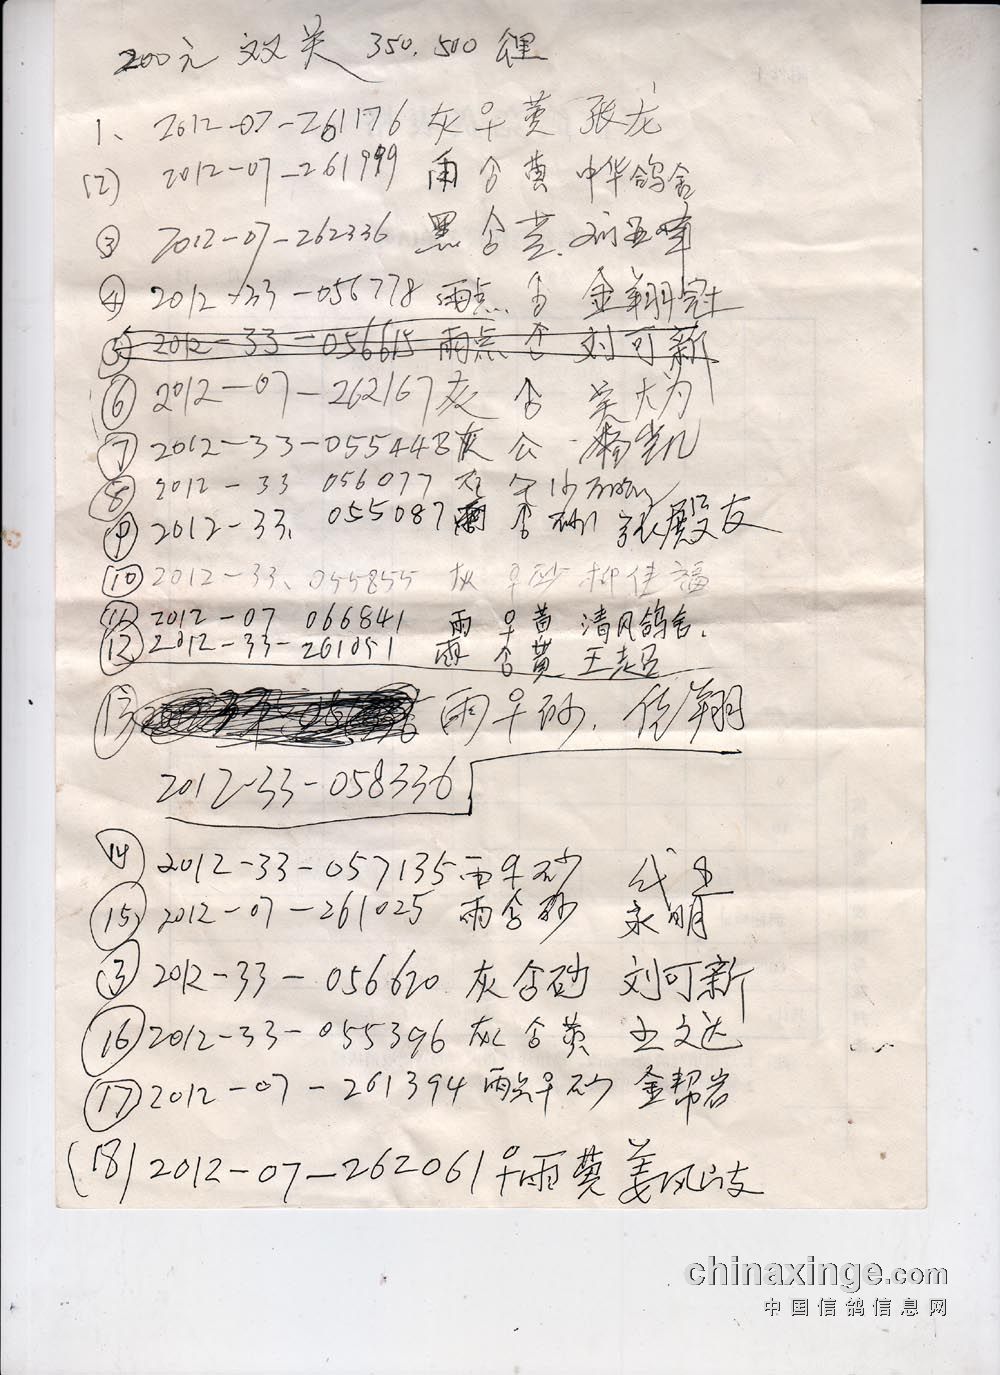 200元 双关 350.500 锂
1、2012-07-261176 灰 早 黄 张龙
(2) 2012-07-261999 雨 合 黄 中华鸽舍
③ 2012-07-262336 黑 合 黄
④ 2012-33-056778 雨点 合 金翔冠
⑤ 2012-33-056615 雨点 合 刘可新
⑥ 2012-07-262167 灰 合 吴大为
⑦ 2012-33-055448 灰 公
⑧ 2012-33 056077
⑨ 2012-33、055087 雨 合 砂 张殿友
⑩ 2012-33、055855 灰 早 砂 柳佳福
⑪ 2012-07 066841 雨 早 黄 清风鸽舍.
⑫ 2012-33-261091 雨 合 黄 王志
⑬ 雨 早 砂. 佐翔
2012-33-058336
⑭ 2012-33-057135 雨 早 砂
⑮ 2012-07-261025 雨 合 砂 永明
③ 2012-33-056620 灰 合 砂 刘可新
⑯ 2012-33-055396 灰 合 黄 王文达
⑰ 2012-07-261394 雨点 早 砂 金帮岩
(18) 2012-07-262061 早 雨 黄 姜凤岐
chinaxinge.com
中国信鸽信息网